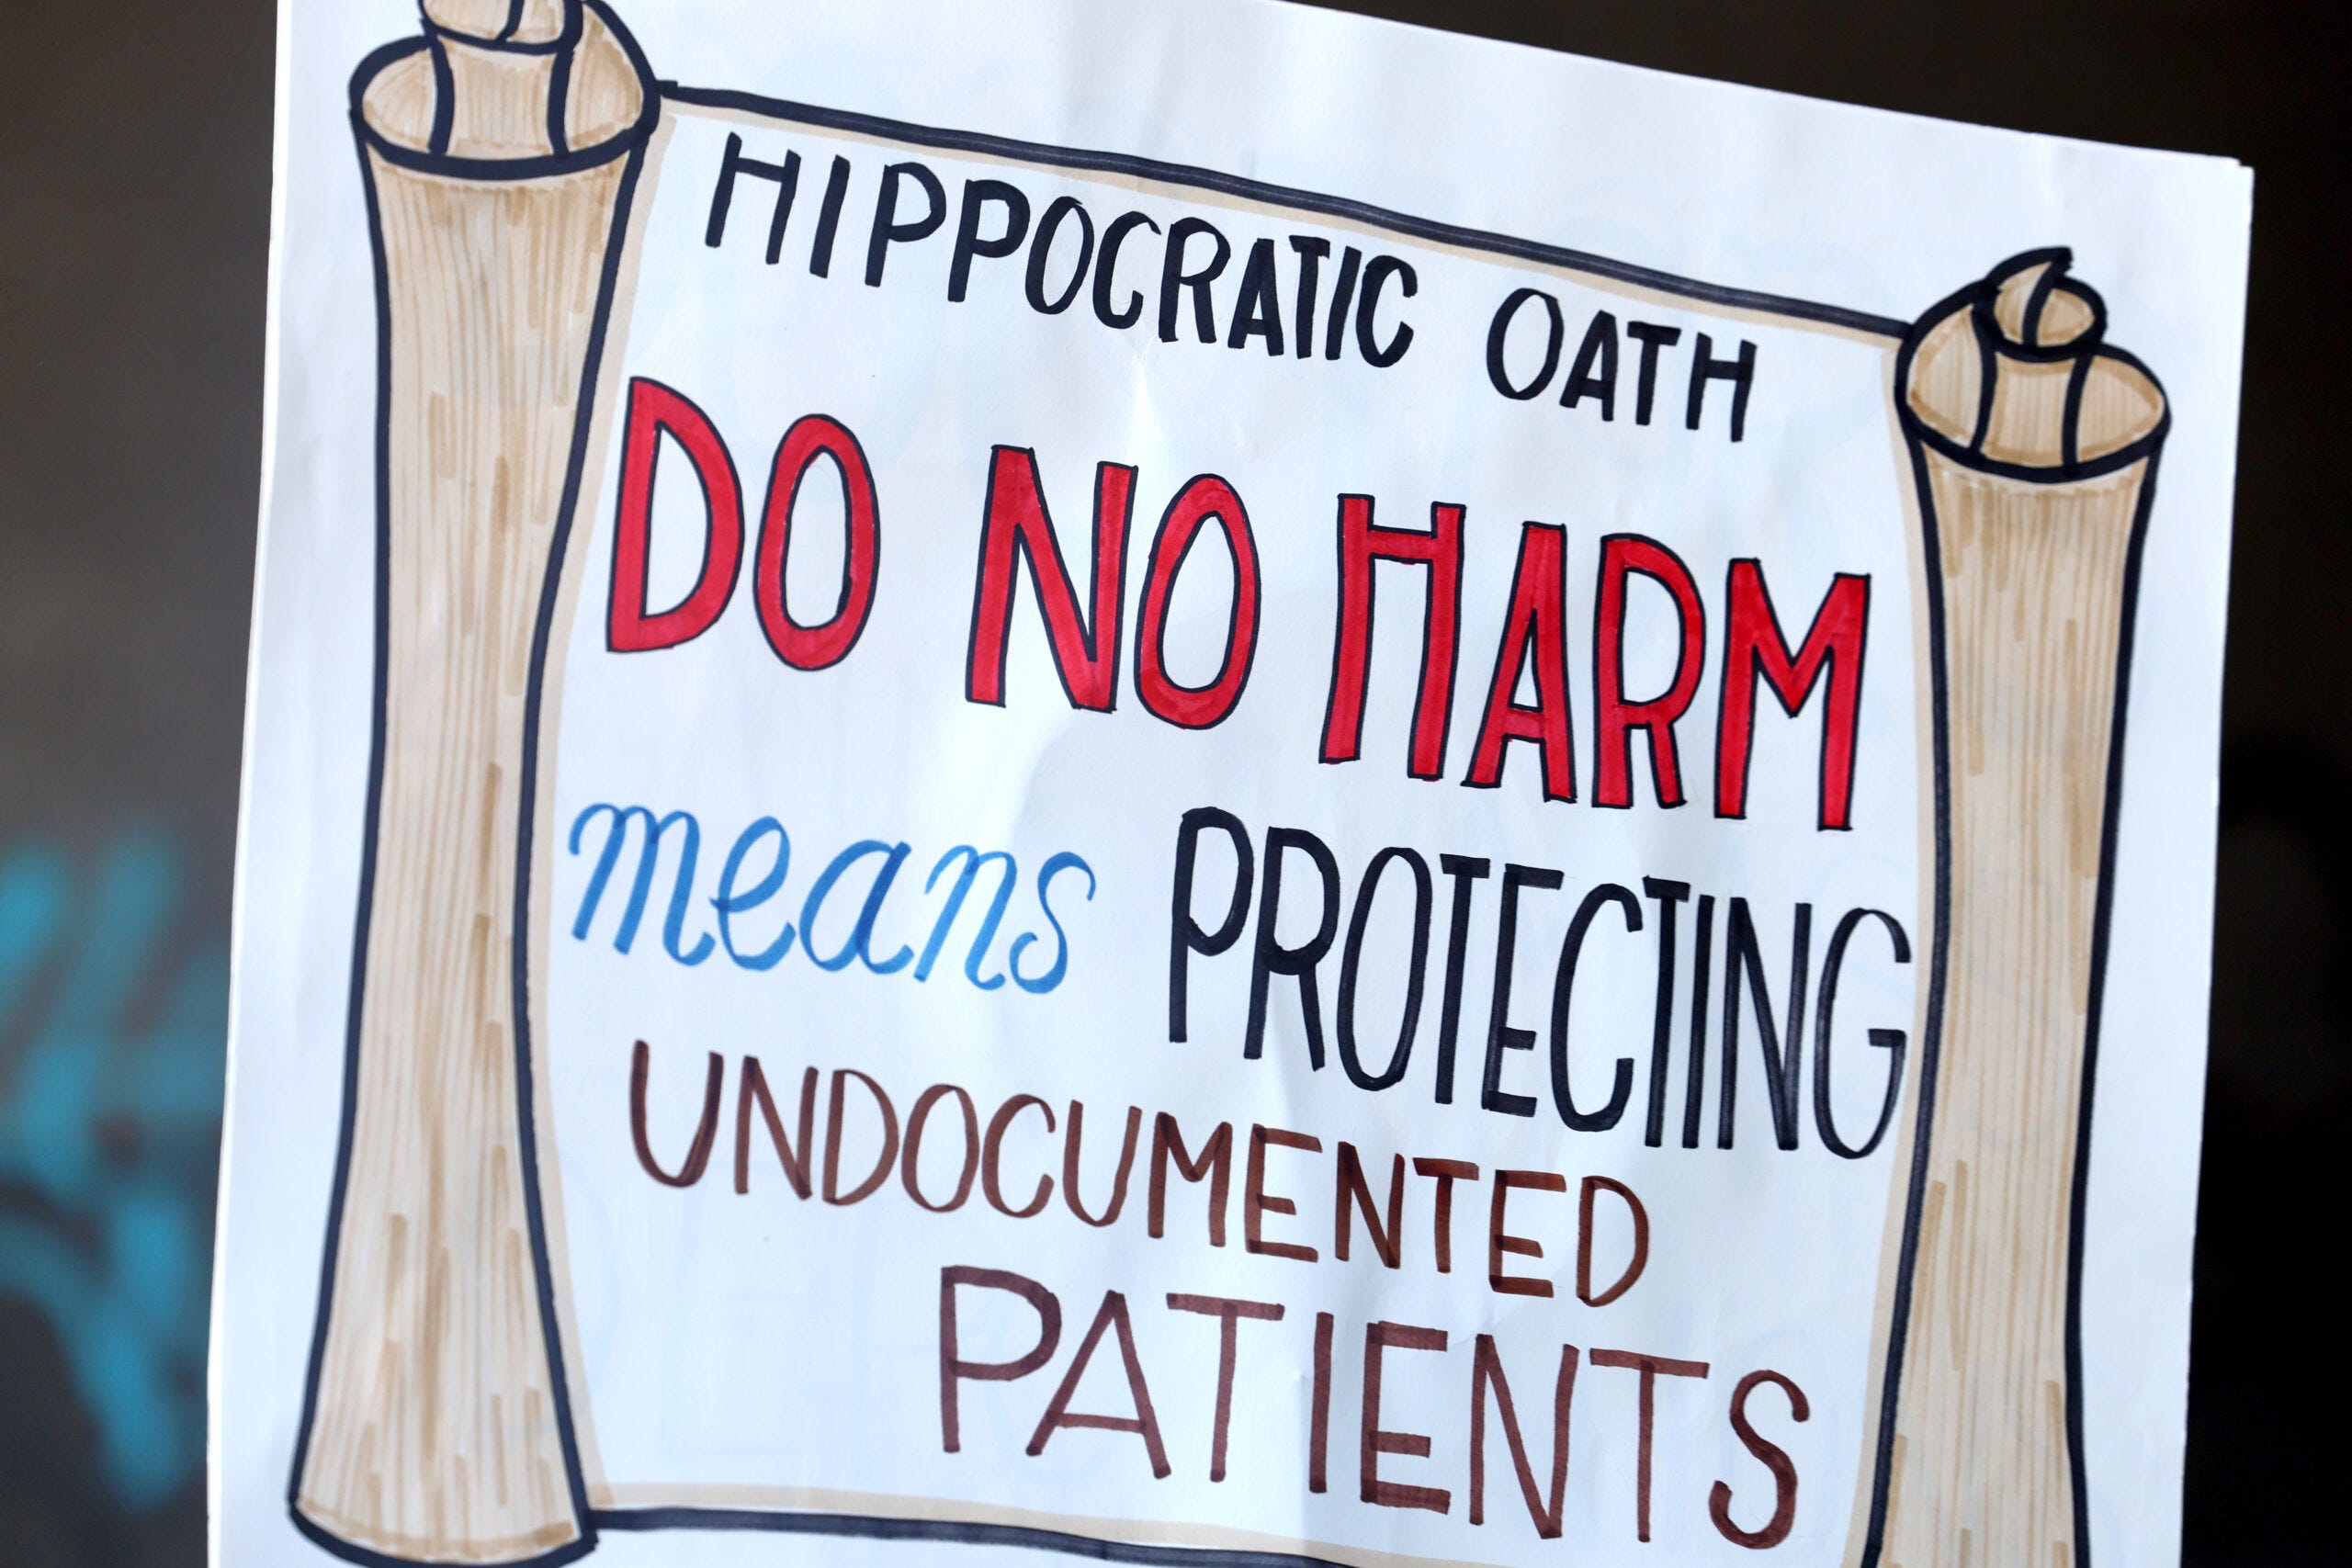 HIPPOCRATIC OATH
DO NO HARM
means PROTECTING
UNDOCUMENTED
PATIENTS